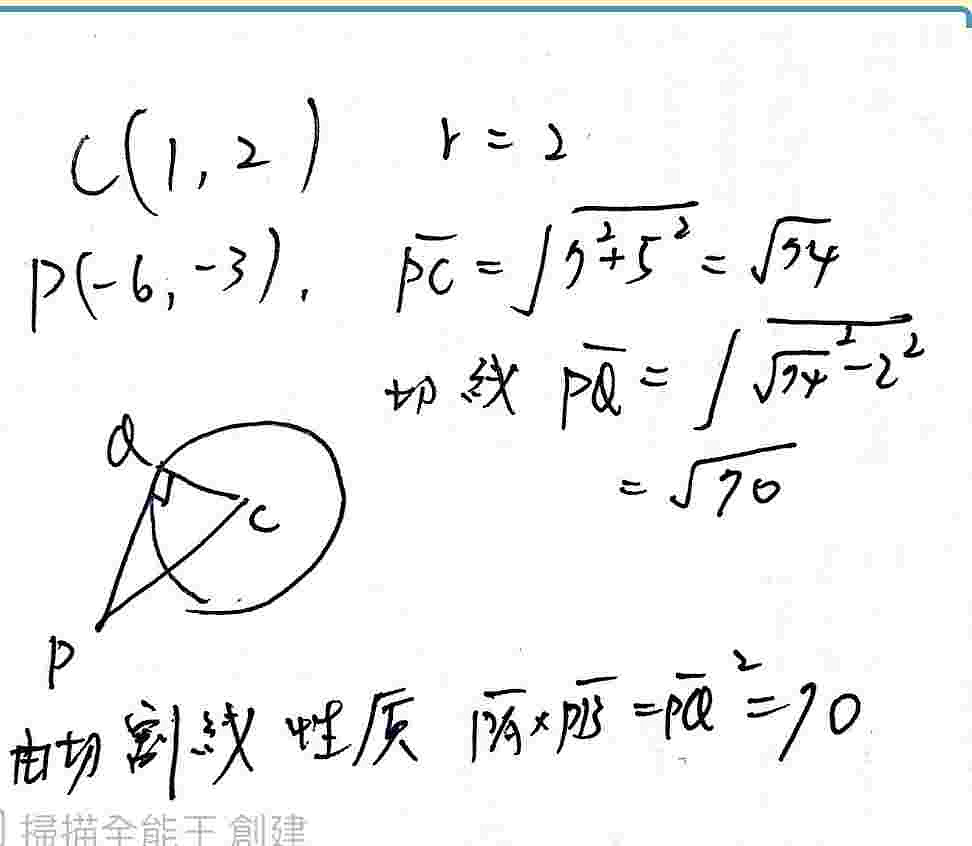 C(1, 2) r = 2
P(-6, -3). \overline{PC} = \sqrt{7^2+5^2} = \sqrt{74}
切線 \overline{PQ} = \sqrt{\sqrt{74}^2-2^2}
= \sqrt{70}
Q
C
P
由切割線性质 \overline{PA}×\overline{PB} = \overline{PQ}^2 = 70
掃描全能王 創建